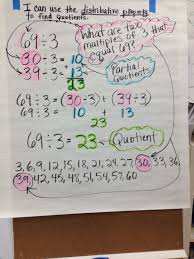 I can use the distributive property
to find Quotients.
69÷3
What are two
multiples of 3 that
equal 69?
30÷3 = 10
39÷3 = 13
23
Partial
Quotients
69÷3 = (30÷3) + (39÷3)
69÷3 = 10 + 13
69÷3 = 23
Quotient
3, 6, 9, 12, 15, 18, 21, 24, 27, 30, 33, 36,
39, 42, 45, 48, 51, 54, 57, 60